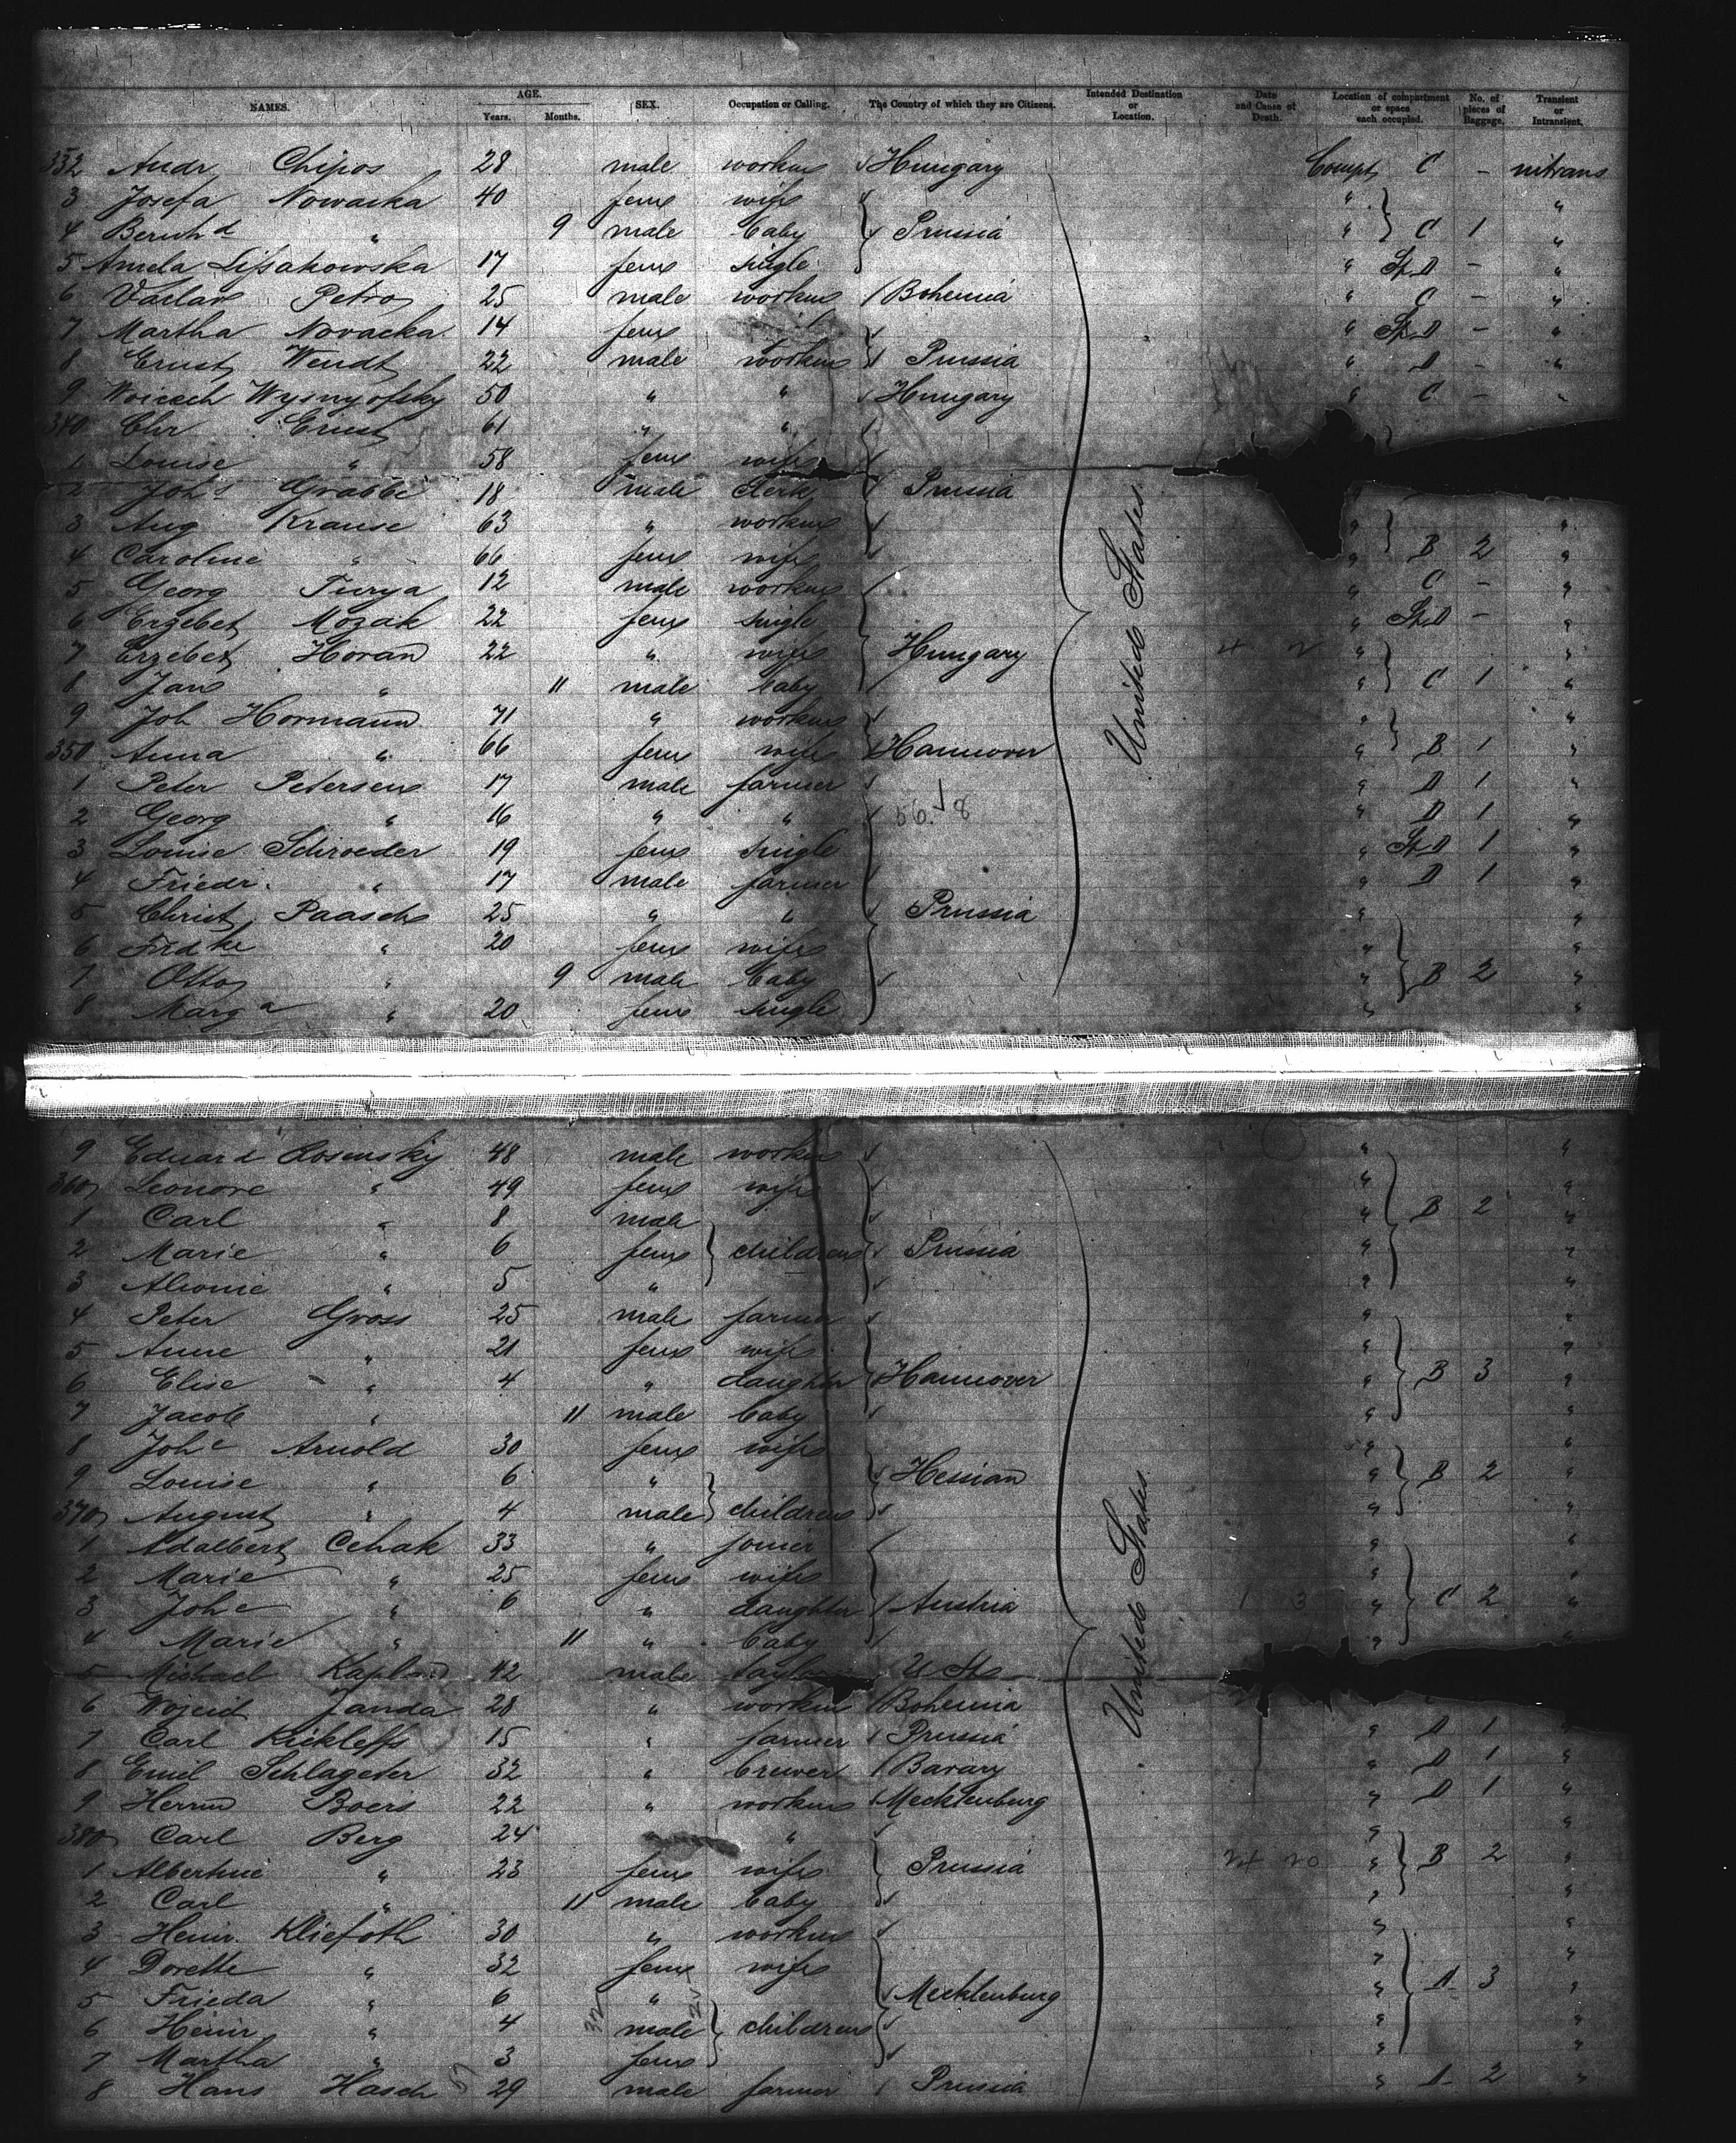 NAMES. AGE. Years. Months. SEX. Occupation or Calling. The Country of which they are Citizens. Intended Destination or Location. Date and Cause of Death. Location of compartment or space each occupied. No. of pieces of Baggage. Transient or Intransient.
332 Andr Chipos 28 male workm Hungary Compt C -
3 Josefa Nowacka 40 fem wife "
4 Bernhd " 9 male baby Prussia " C 1 "
5 Aniela 17 fem single " St.D - "
6 Vaclav Petro 25 male workm Bohemia " C - "
7 Martha Novacka 14 fem " St.D - "
8 Ernst Wendt 22 male workm Prussia " D - "
9 50 " " Hungary " C - "
340 Chr Ernst 61 " "
1 Louise " 58 fem wife
2 Johs Grabbe 18 male clerk Prussia
3 Aug Krause 63 " workm " "
4 Caroline " 66 fem wife " B 2 "
5 Georg Turya 12 male workm " C - "
6 Erzebet Mozak 22 fem single " St.D - "
7 Erzebet Horan 22 " wife Hungary " "
8 Jan " 11 male baby " C 1 "
9 Joh Hormann 71 " workm " "
350 Anna " 66 fem wife Hannover " B 1 "
1 Peter Petersen 17 male farmer " D 1 "
2 Georg " 16 " " " D 1 "
3 Louise Schroeder 19 fem single " St.D 1 "
4 Friedr. " 17 male farmer " D 1 "
5 Christ. Paasch 25 " " Prussia " "
6 Fridke " 20 fem wife " "
7 Otto " 9 male baby " B 2 "
8 Marga " 20 fem single " "
United States
9 Eduard Rosensky 48 male workm " "
360 Leonore " 49 fem wife " "
1 Carl " 8 male " B 2 "
2 Marie " 6 fem children Prussia " "
3 " 5 " " "
4 Peter Gross 25 male farmer " "
5 Anne " 21 fem wife " "
6 Elise " 4 " daughter Hannover " B 3 "
7 Jacob " 11 male baby " "
8 Johe Arnold 30 fem wife " "
9 Louise " 6 " Hessian " B 2 "
370 August " 4 male children " "
1 Adalbert Cehak 33 " joiner " "
2 Marie " 25 fem wife " "
3 Johe " 6 " daughter Austria " C 2 "
4 Marie " 11 " baby " "
5 Michael 42 male U Sts
6 Janda 28 " workm Bohemia
7 Carl Rickleffs 15 " farmer Prussia " D 1 "
8 Emil Schlageter 32 " brewer Bavary " D 1 "
9 Herm Boers 22 " workm Mecklenburg " D 1 "
380 Carl Berg 24 " " "
1 Albertine " 23 fem wife Prussia " B 2 "
2 Carl " 11 male baby " "
3 Heinr. Kliefoth 30 " workm " "
4 Dorette " 32 fem wife " "
5 Frieda " 6 " Mecklenburg " D 3 "
6 Heinr. " 4 male children " "
7 Martha " 3 fem " "
8 Hans Hasch 29 male farmer Prussia " D 2 "
United States